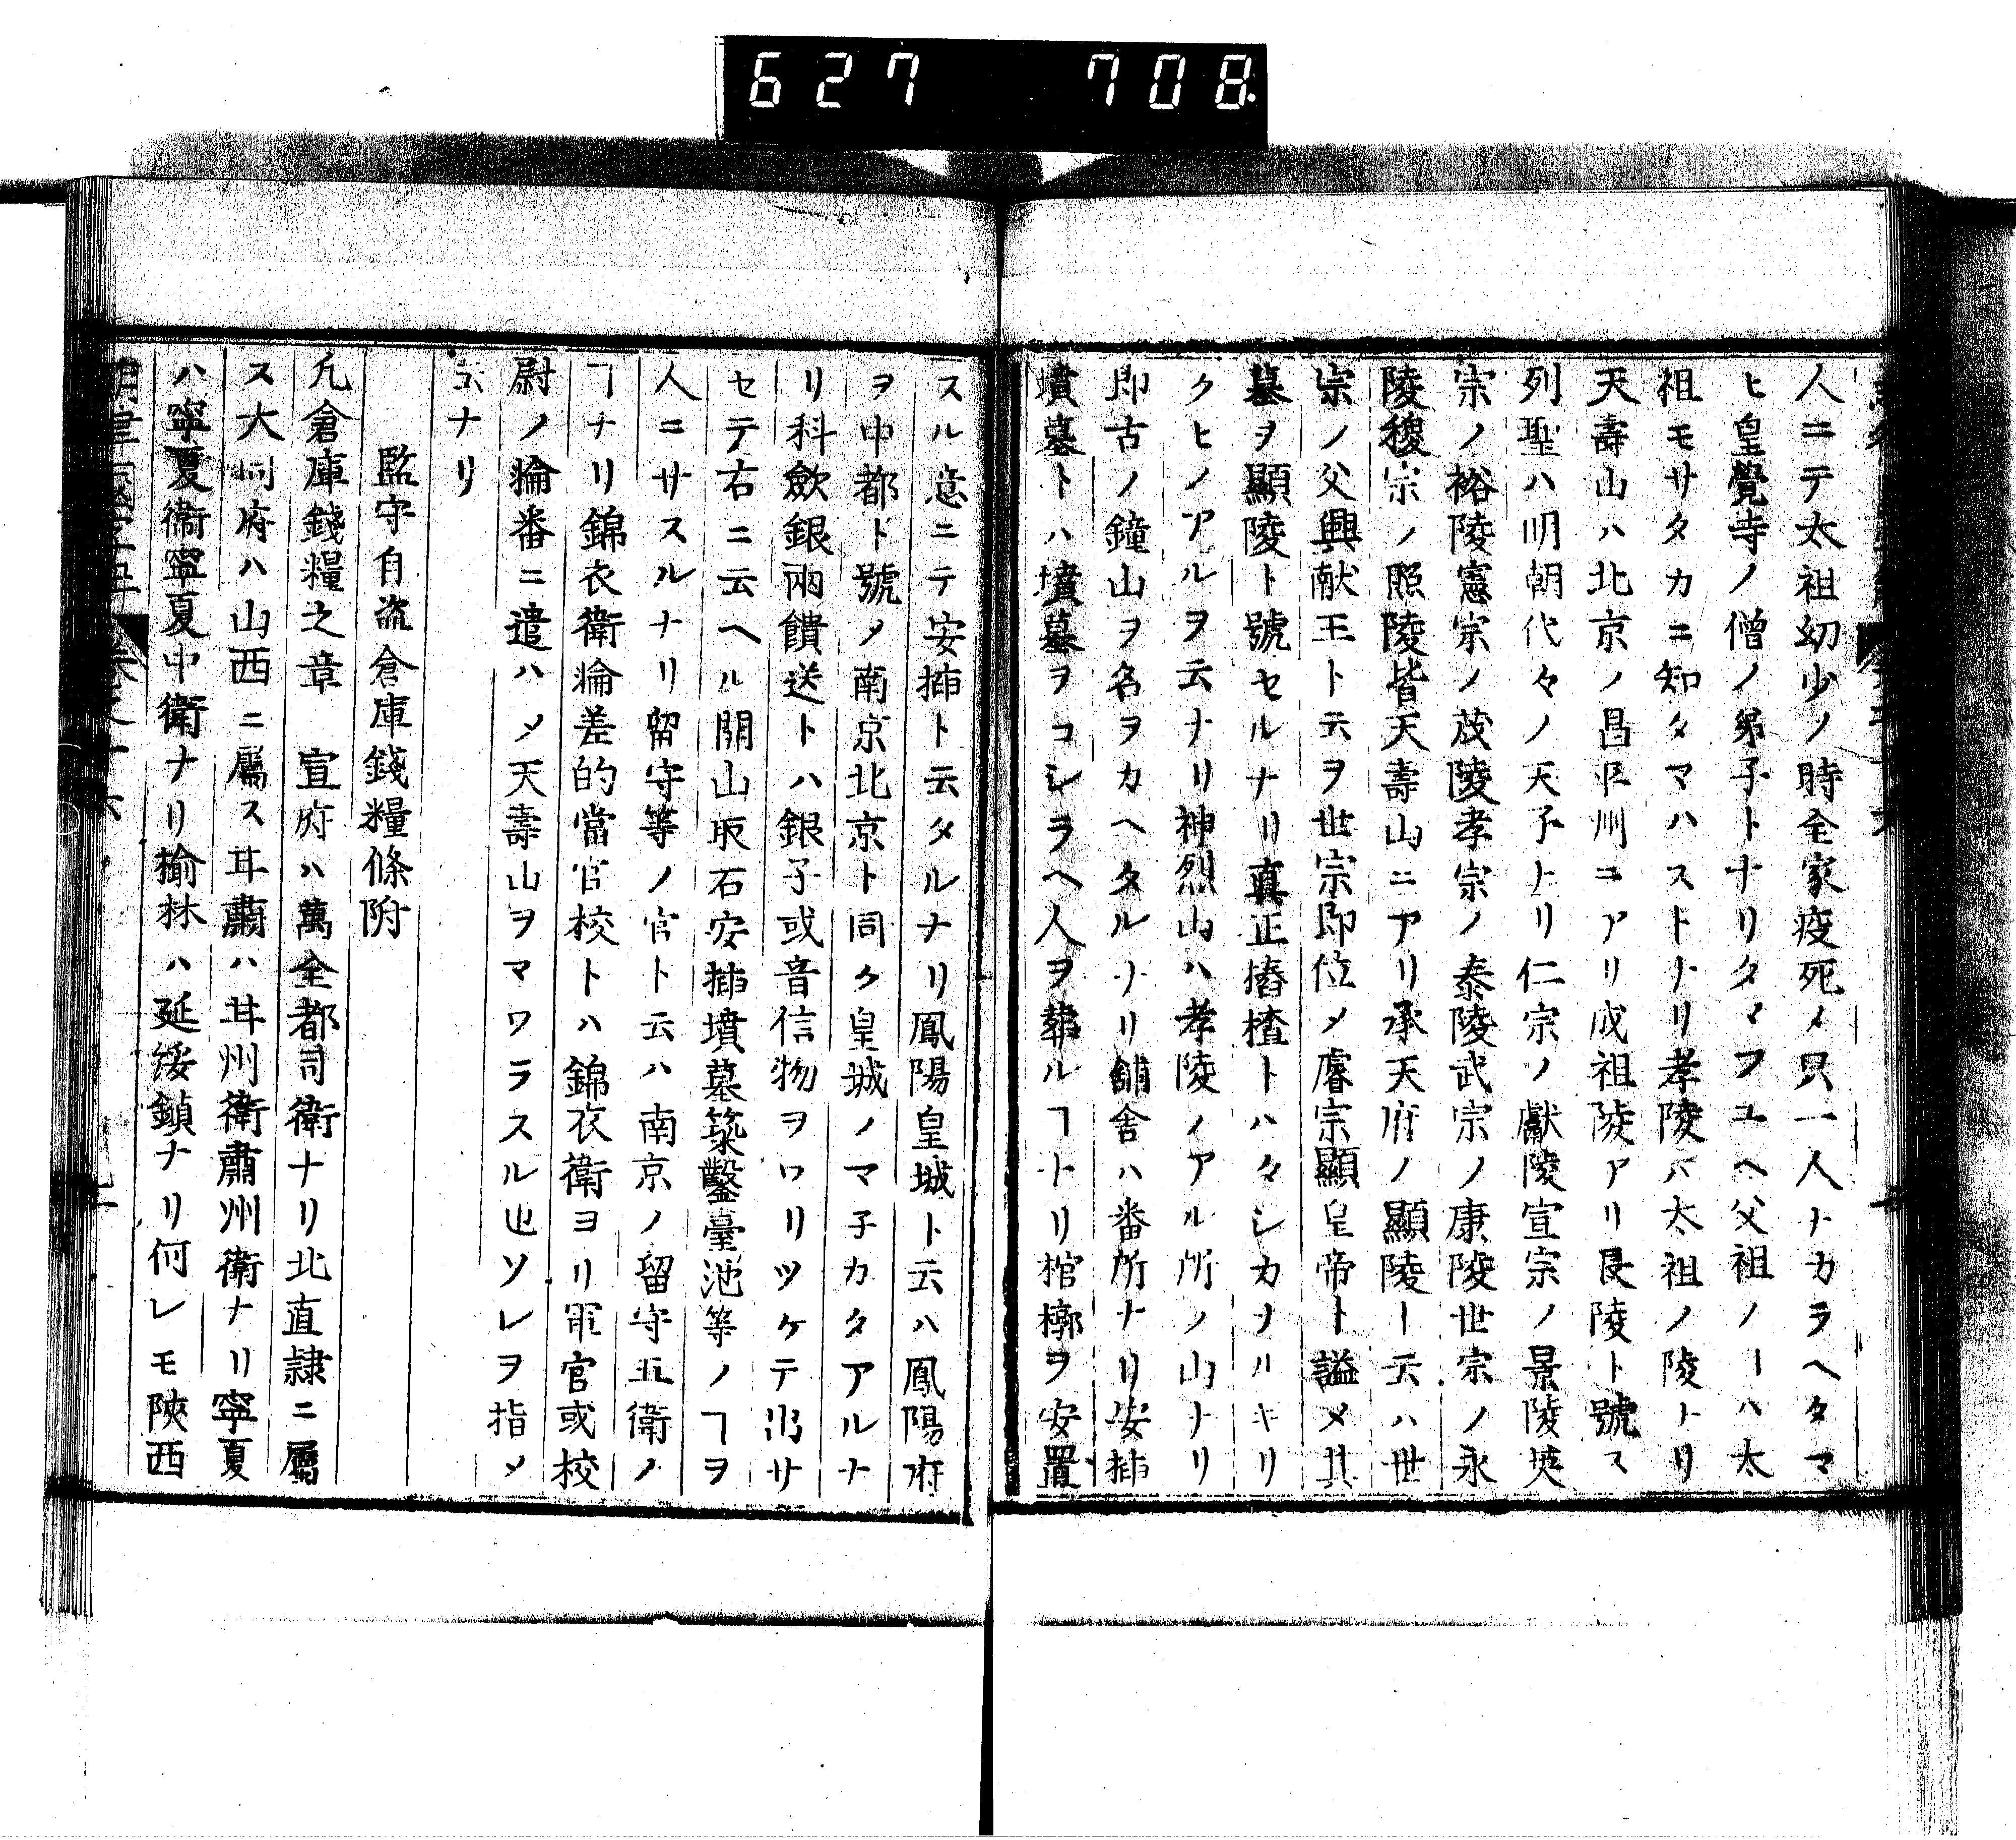 627 708
人ニテ太祖幼少ノ時全家疫死メ只一人ナカラヘタマ
ヒ皇覺寺ノ僧ノ弟子トナリタマフユヘ父祖ノヿハ太
祖モサタカニ知タマハストナリ孝陵ハ太祖ノ陵トリ
天壽山ハ北京ノ昌平州ニアリ成祖陵アリ長陵ト號ス
列聖ハ明朝代々ノ天子ナリ仁宗ノ獻陵宣宗ノ景陵英
宗ノ裕陵憲宗ノ茂陵孝宗ノ泰陵武宗ノ康陵世宗ノ永
陵穆宗ノ照陵皆天壽山ニアリ承天府ノ顯陵ト云ハ世
宗ノ父興献王ト云ヲ世宗即位メ睿宗顯皇帝ト謚メ其
墓ヲ顯陵ト號セルナリ真正樁楂トハタシカナルキリ
クヒノアルヲ云ナリ神烈山ハ孝陵ノアル所ノ山ナリ
即古ノ鐘山ヲ名ヲカヘタルナリ舗舎ハ番所ナリ安揷
墳墓トハ墳墓ヲコシラヘ人ヲ葬ルヿトリ棺槨ヲ安置
スル意ニテ安揷ト云タルナリ鳳陽皇城ト云ハ鳳陽府
ヲ中都ト號メ南京北京ト同ク皇城ノマ子カタアルナ
リ科歛銀兩饋送トハ銀子或音信物ヲワリツケテ出サ
セテ右ニ云ヘル開山取石安揷墳墓築鑿臺池等ノヿヲ
人ニサスルナリ留守等ノ官ト云ハ南京ノ留守五衛ノ
ヿナリ錦衣衛輪差的當官校トハ錦衣衛ヨリ軍官或校
尉ノ輪番ニ遣ハメ天壽山ヲマワラスル也ソレヲ指メ
云ナリ
監守自盗倉庫錢糧條附
凢倉庫錢糧之章　宣府ハ萬全都司衛ナリ北直隷ニ屬
ス大同府ハ山西ニ屬ス甘肅ハ甘州衛肅州衛ナリ寧夏
ハ寧夏衛寧夏中衛ナリ榆林ハ延綏鎮ナリ何レモ陝西